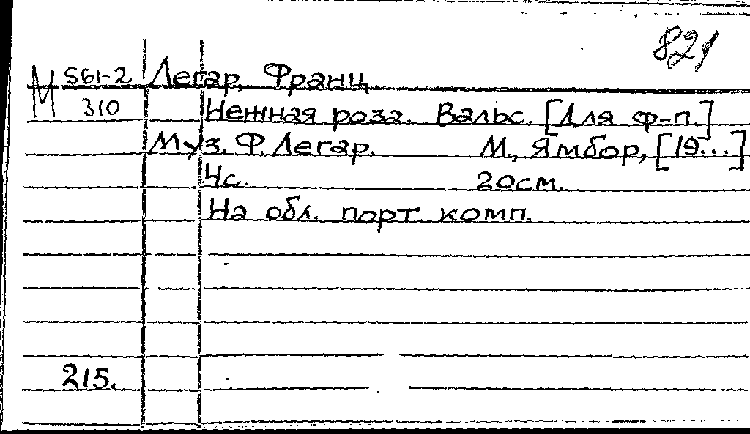 821
М 561-2 Легар, Франц
310 Нежная роза. Вальс. [Для ф-п.]
Муз. Ф. Легар. М., Ямбор, [19...]
4с. 20см.
На обл. порт. комп.
215.